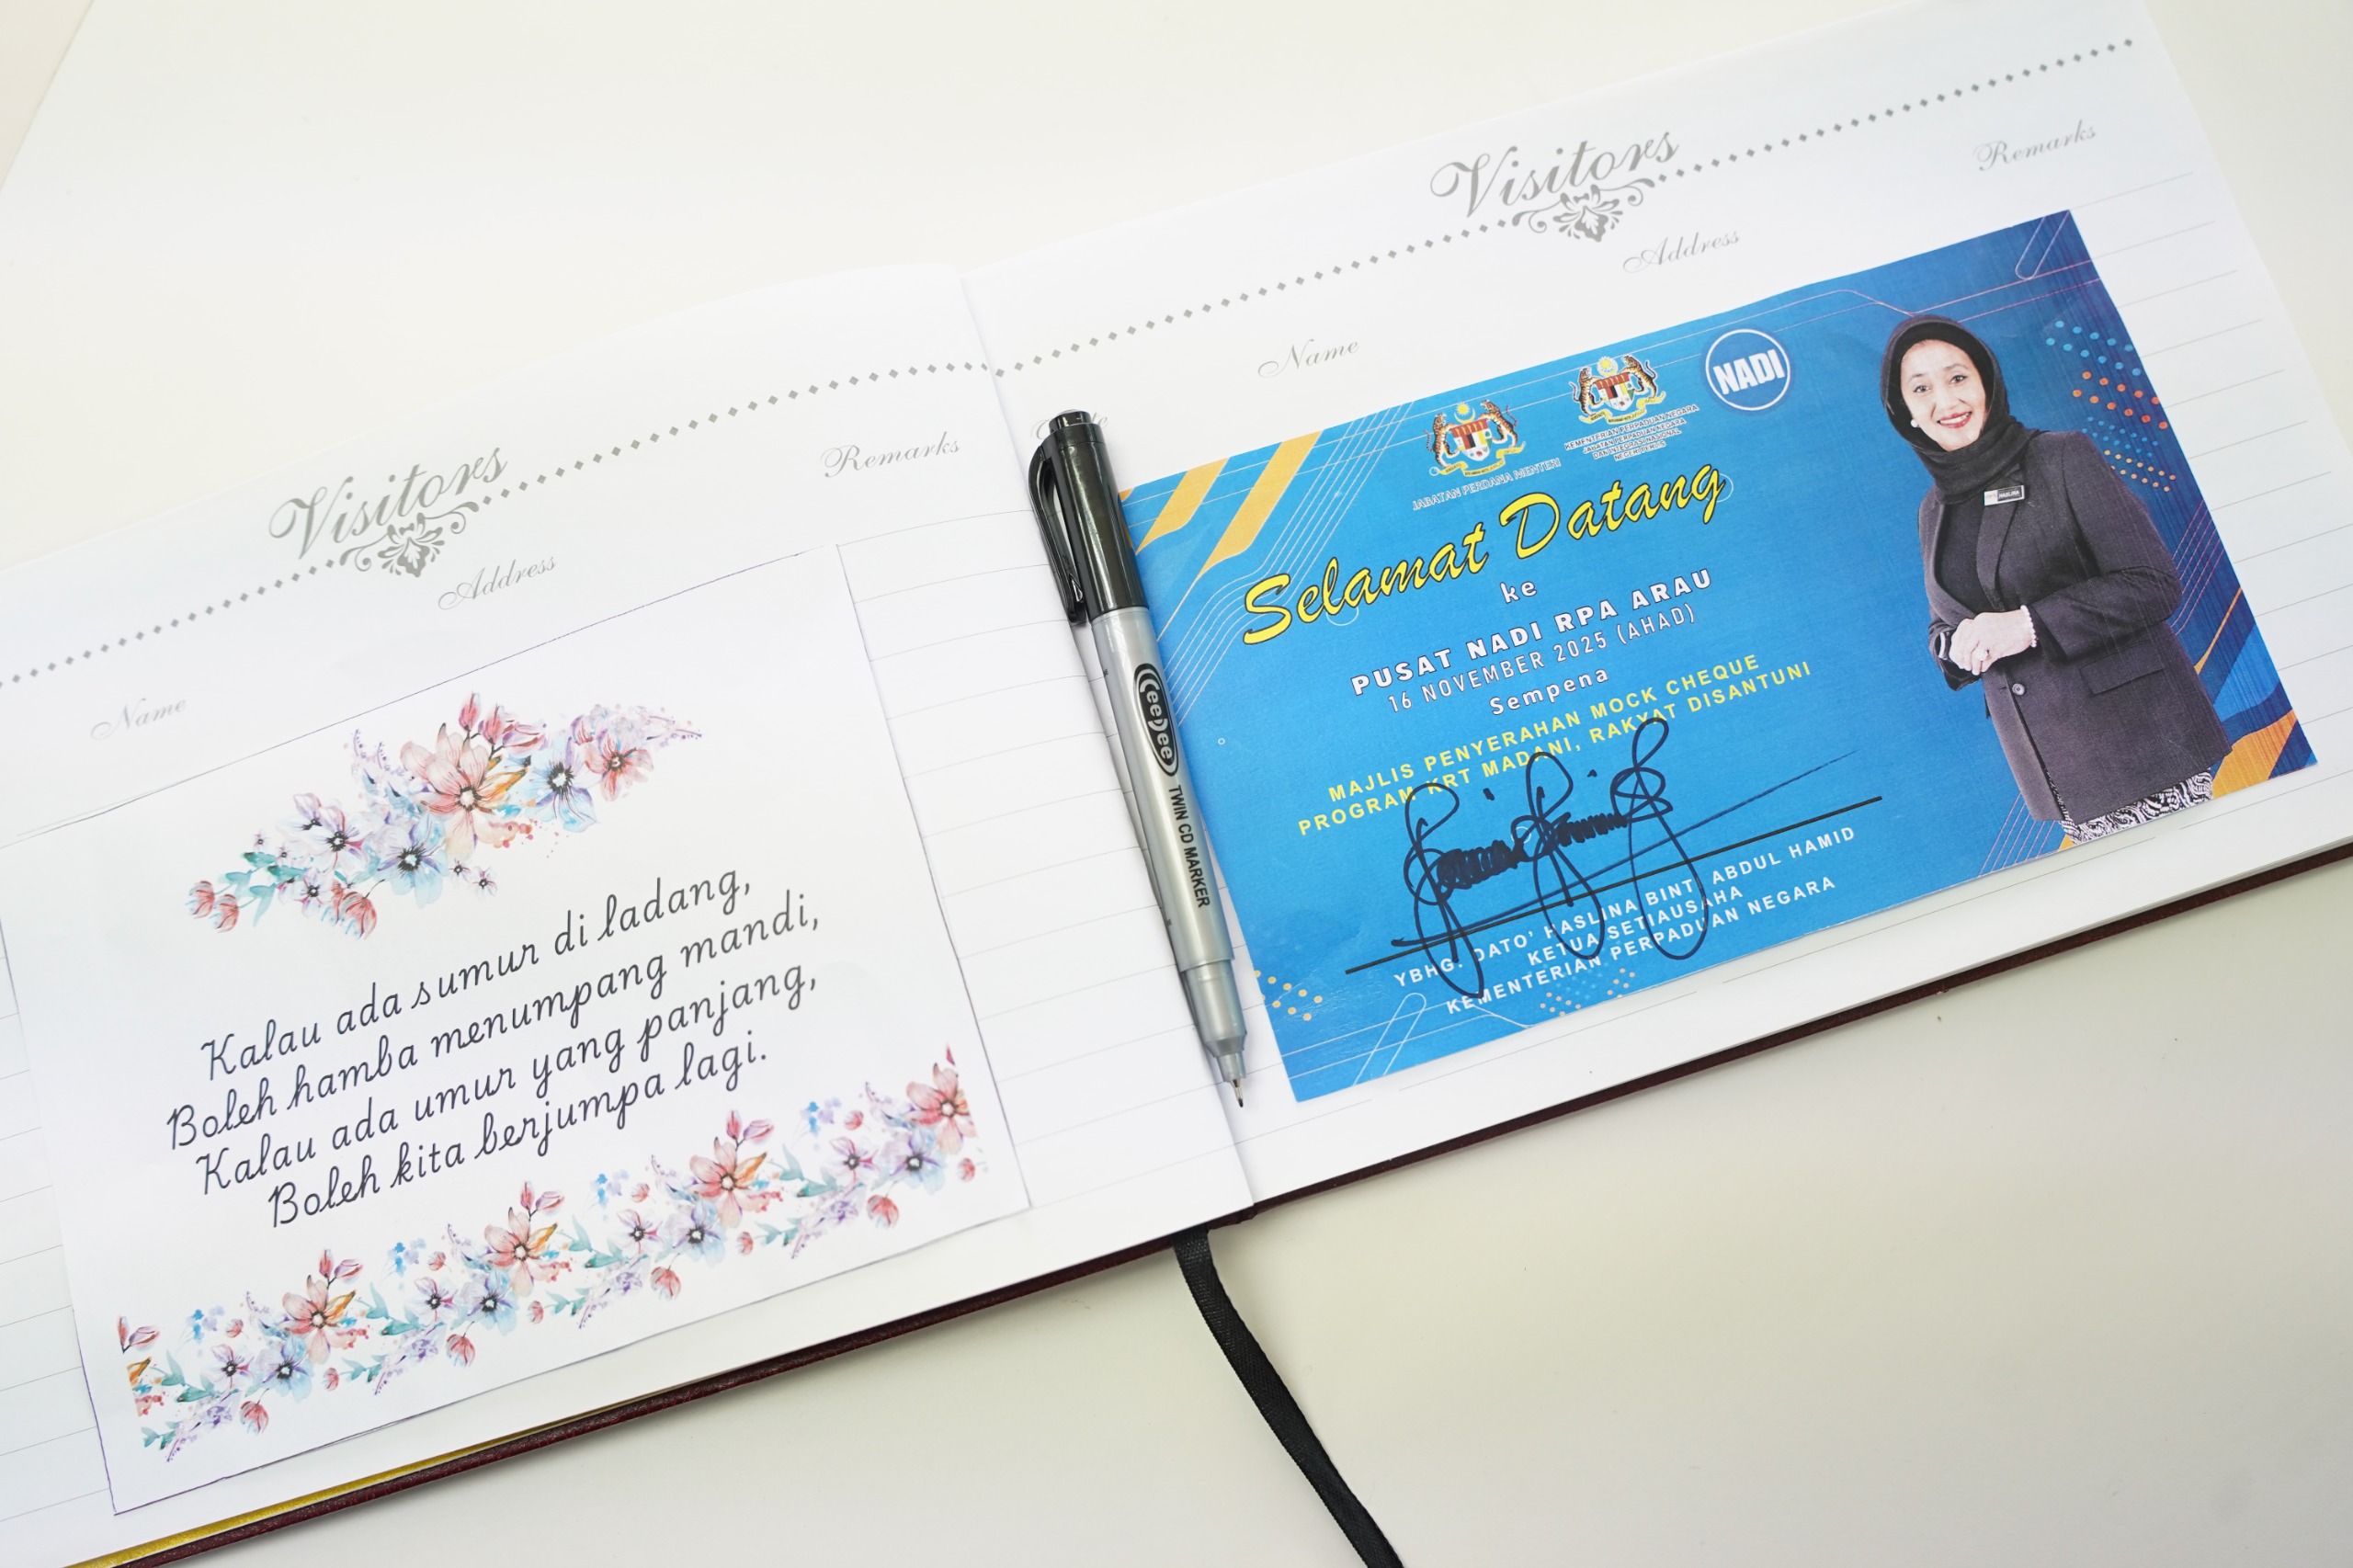 Visitors
Name
Address
Remarks
Kalau ada sumur di ladang,
Boleh hamba menumpang mandi,
Kalau ada umur yang panjang,
Boleh kita berjumpa lagi.
Visitors
Name
Address
Remarks
JABATAN PERDANA MENTERI
KEMENTERIAN PERPADUAN NEGARA
JABATAN PERPADUAN NEGARA
DAN INTEGRASI NASIONAL
NEGERI PERLIS
NADI
Selamat Datang
ke
PUSAT NADI RPA ARAU
16 NOVEMBER 2025 (AHAD)
Sempena
MAJLIS PENYERAHAN MOCK CHEQUE
PROGRAM KRT MADANI, RAKYAT DISANTUNI
YBHG. DATO' HASLINA BINTI ABDUL HAMID
KETUA SETIAUSAHA
KEMENTERIAN PERPADUAN NEGARA
CeePee TWIN CD MARKER